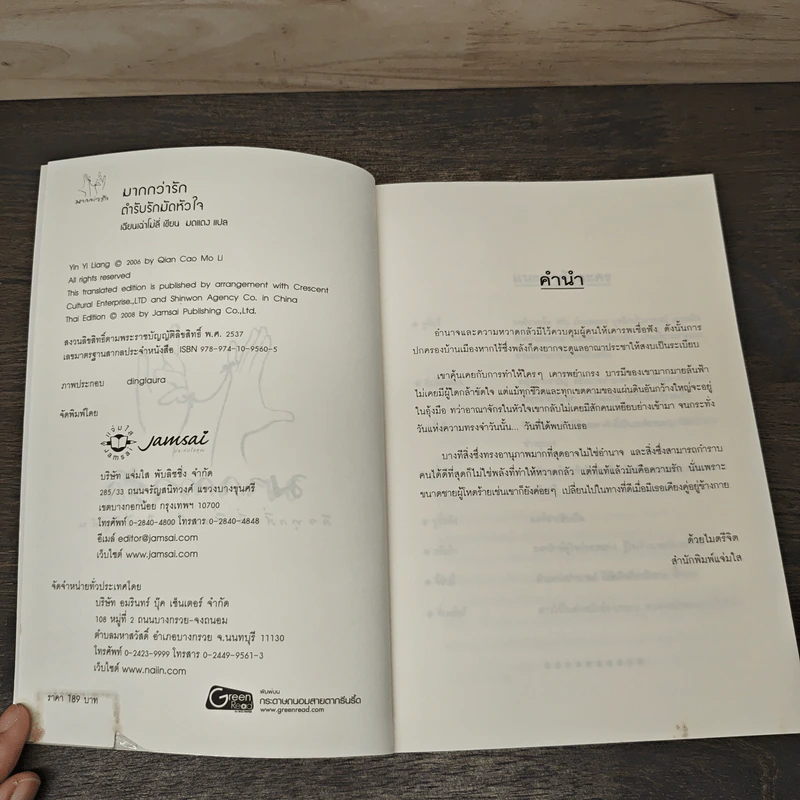 มากกว่ารัก
มากกว่ารัก
ตำรับรักมัดหัวใจ
เฉียนเฉ่าโม่ลี่ เขียน มดแดง แปล
Yin Yi Liang © 2006 by Qian Cao Mo Li
All rights reserved
This translated edition is published by arrangement with Crescent
Cultural Enterprise.,LTD and Shinwon Agency Co. in China
Thai Edition © 2008 by Jamsai Publishing Co.,Ltd.
สงวนลิขสิทธิ์ตามพระราชบัญญัติลิขสิทธิ์ พ.ศ. 2537
เลขมาตรฐานสากลประจำหนังสือ ISBN 978-974-10-9560-5
ภาพประกอบ dinglaura
จัดพิมพ์โดย
แจ่มใส
Jamsai
Jamsai
บริษัท แจ่มใส พับลิชชิ่ง จำกัด
285/33 ถนนจรัญสนิทวงศ์ แขวงบางขุนศรี
เขตบางกอกน้อย กรุงเทพฯ 10700
โทรศัพท์ 0-2840-4800 โทรสาร 0-2840-4848
อีเมล์ editor@jamsai.com
เว็บไซต์ www.jamsai.com
จัดจำหน่ายทั่วประเทศโดย
บริษัท อมรินทร์ บุ๊ค เซ็นเตอร์ จำกัด
108 หมู่ที่ 2 ถนนบางกรวย-จงถนอม
ตำบลมหาสวัสดิ์ อำเภอบางกรวย จ.นนทบุรี 11130
โทรศัพท์ 0-2423-9999 โทรสาร 0-2449-9561-3
เว็บไซต์ www.naiin.com
ราคา 189 บาท
Green
Read
พิมพ์บน
กระดาษถนอมสายตากรีนรี้ด
www.greenread.com
คำนำ
อำนาจและความหวาดกลัวมีไว้ควบคุมผู้คนให้เคารพเชื่อฟัง ดังนั้นการ
ปกครองบ้านเมืองหากไร้ซึ่งพลังก็คงยากจะดูแลอาณาประชาให้สงบเป็นระเบียบ
เขาคุ้นเคยกับการทำให้ใครๆ เคารพยำเกรง บารมีของเขามากมายล้นฟ้า
ไม่เคยมีผู้ใดกล้าขัดใจ แต่แม้ทุกชีวิตและทุกเขตคามของแผ่นดินอันกว้างใหญ่จะอยู่
ในอุ้งมือ ทว่าอาณาจักรในหัวใจเขากลับไม่เคยมีสักคนเหยียบย่างเข้ามา จนกระทั่ง
วันแห่งความทรงจำวันนั้น... วันที่ได้พบกับเธอ
บางทีสิ่งซึ่งทรงอานุภาพมากที่สุดอาจไม่ใช่อำนาจ และสิ่งซึ่งสามารถกำราบ
คนได้ดีที่สุดก็ไม่ใช่พลังที่ทำให้หวาดกลัว แต่ที่แท้แล้วมันคือความรัก นั่นเพราะ
ขนาดชายผู้โหดร้ายเช่นเขาก็ยังค่อยๆ เปลี่ยนไปในทางที่ดีเมื่อมีเธอเคียงคู่อยู่ข้างกาย
ด้วยไมตรีจิต
สำนักพิมพ์แจ่มใส